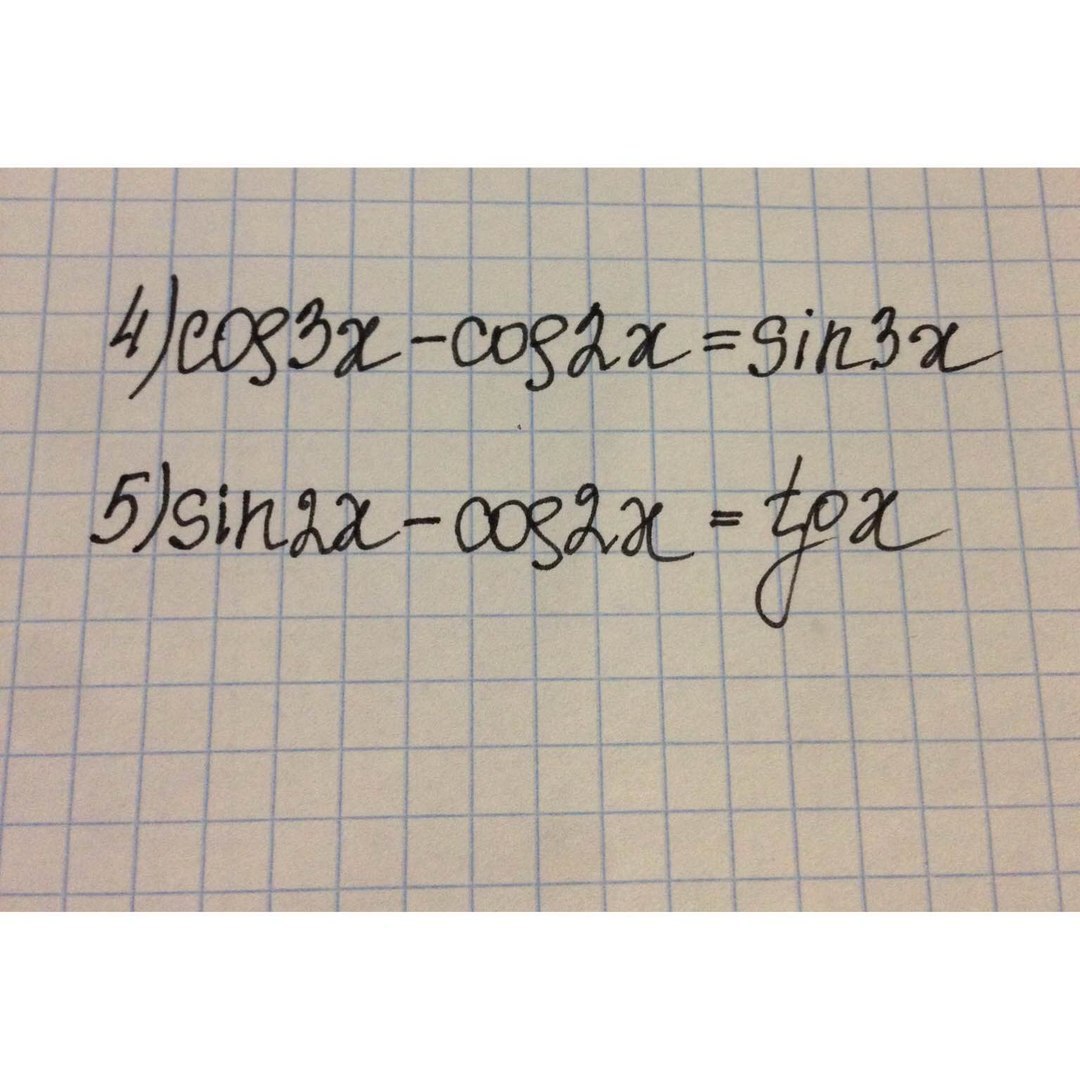 4) cos3x - cos2x = sin3x
5) sin2x - cos2x = tgx